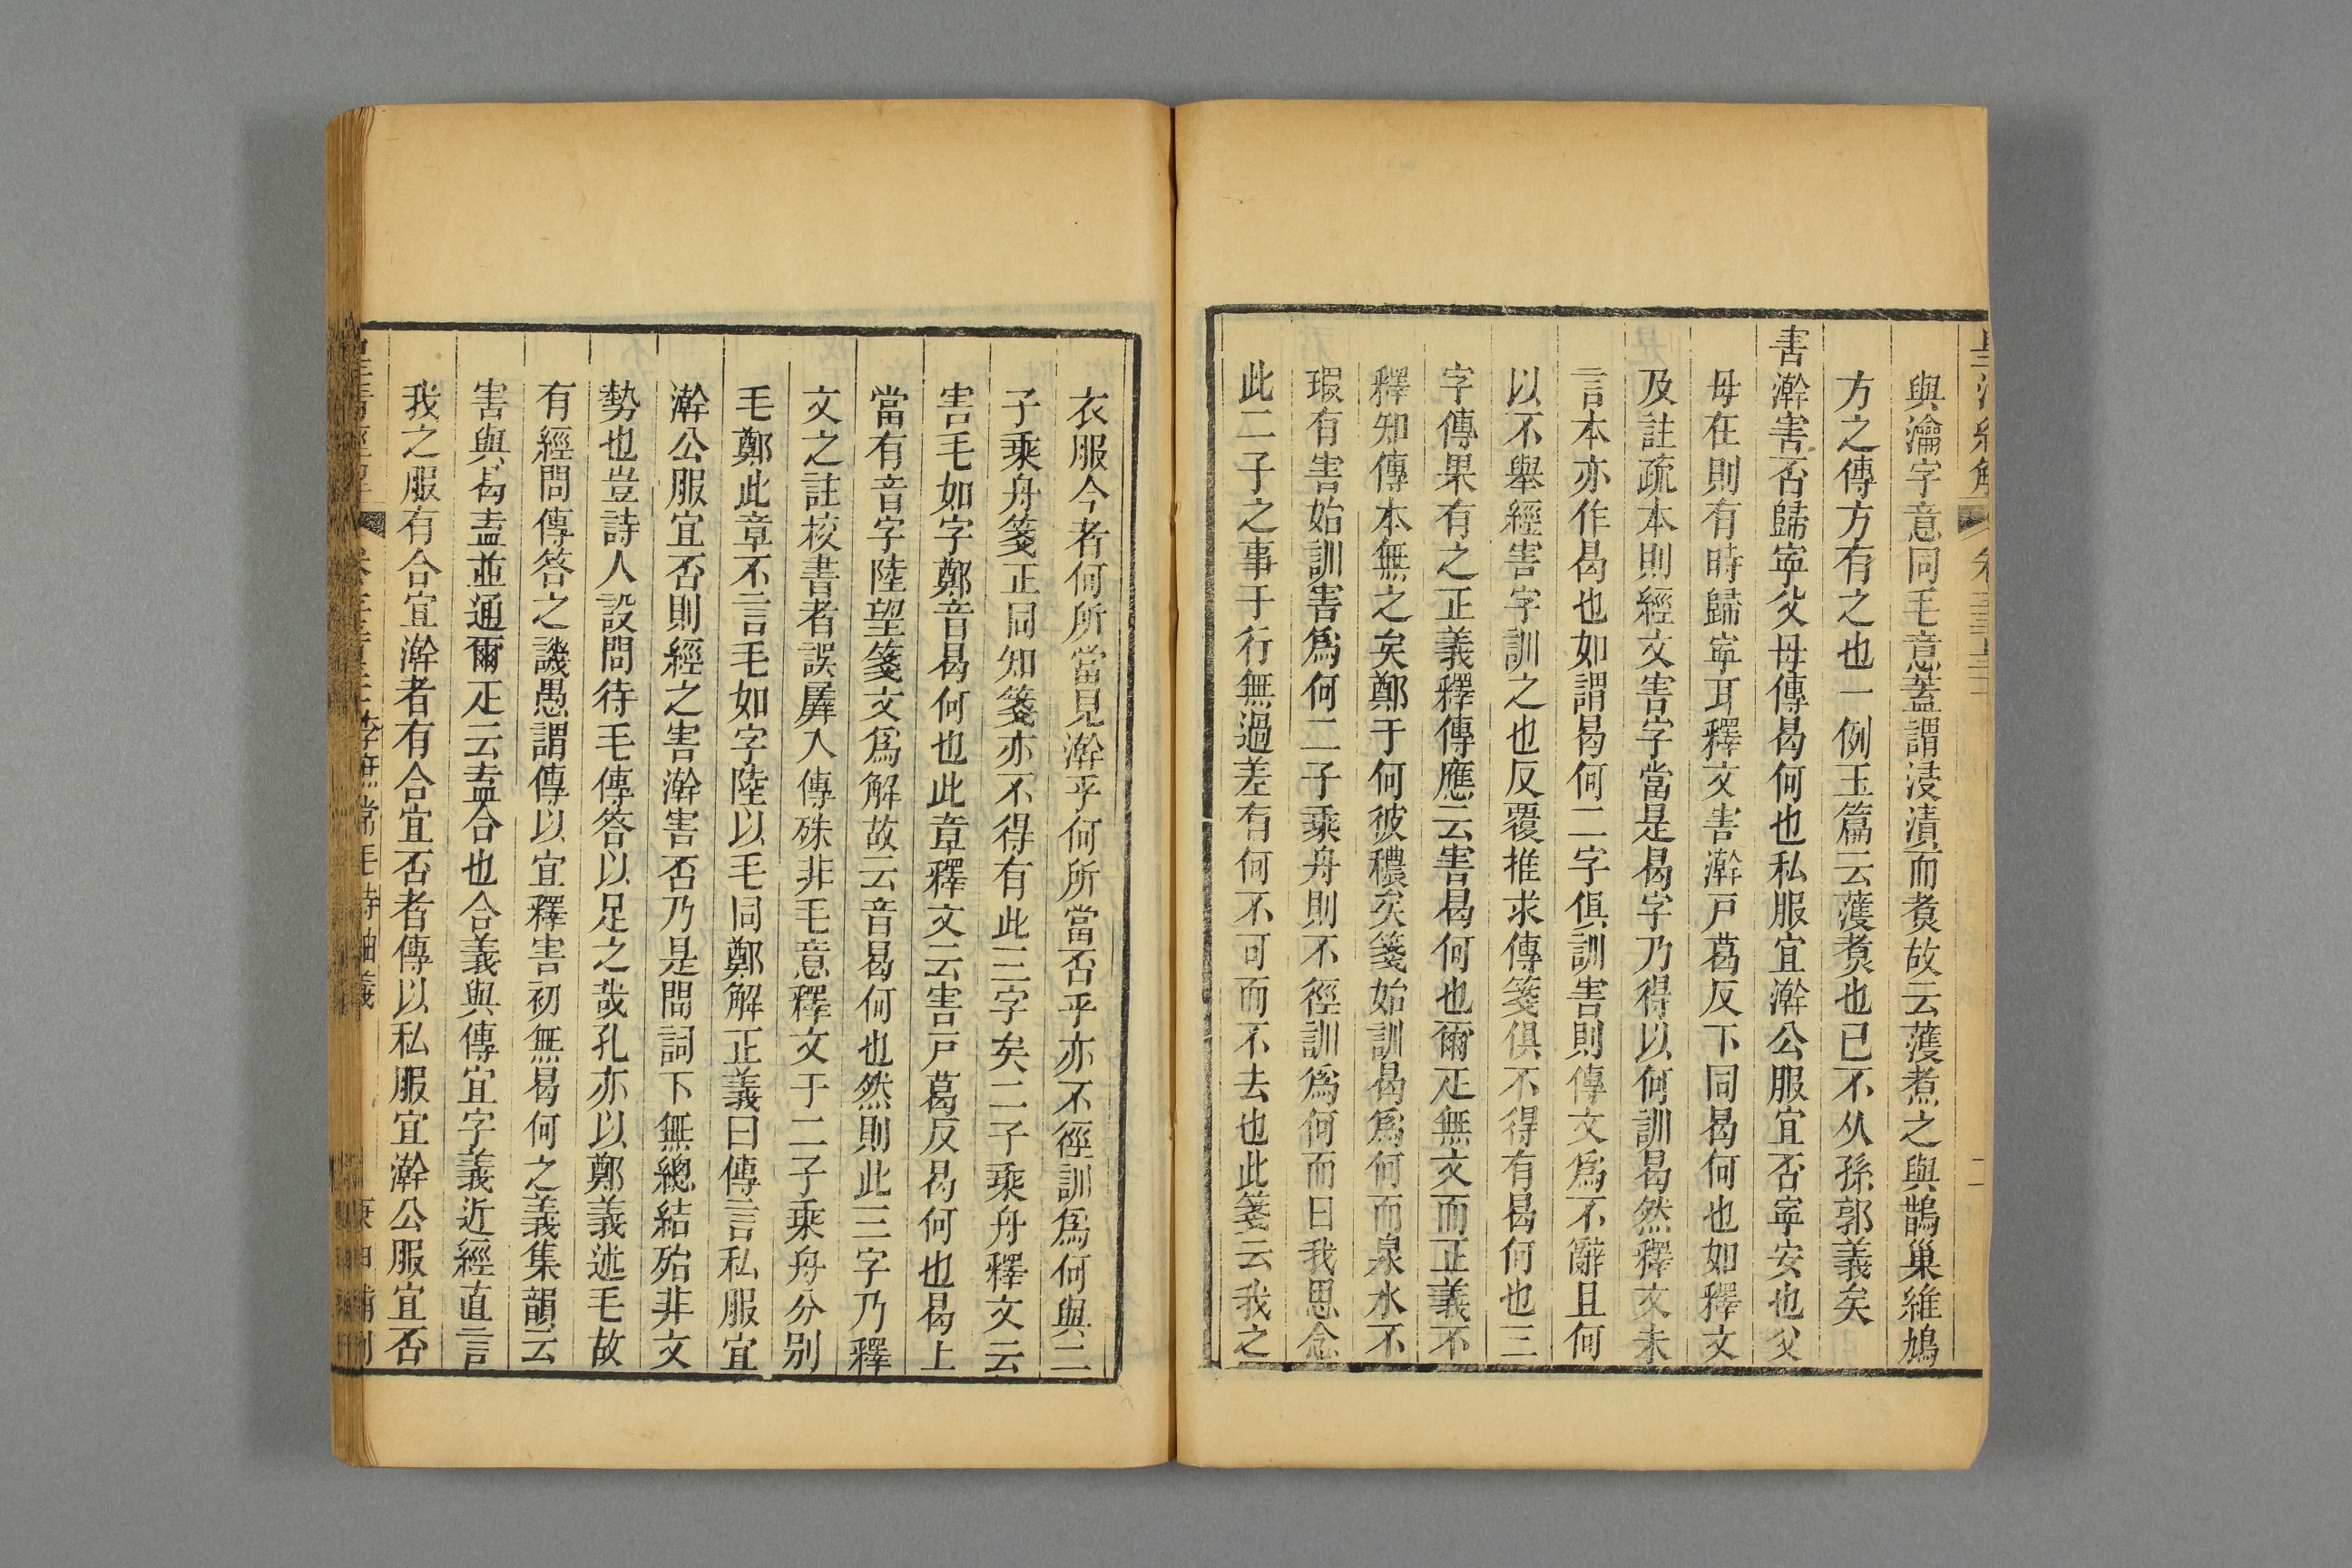 與瀹字意同毛意蓋謂浸漬而煑故云濩煮之與鵲巢維鳩
方之傳方有之也一例玉篇云濩煑也已不从孫郭義矣
害澣害否歸寧父母傳曷何也私服宜澣公服宜否寧安也父
母在則有時歸寧耳釋文害澣戸葛反下同曷何也如釋文
及註疏本則經文害字當是曷字乃得以何訓曷然釋文未
言本亦作曷也如謂曷何二字俱訓害則傳文爲不辭且何
以不舉經害字訓之也反覆推求傳箋俱不得有曷何也三
字傳果有之正義釋傳應云害曷何也爾疋無文而正義不
釋知傳本無之矣鄭于何彼穠矣箋始訓曷爲何而泉水不
瑕有害始訓害爲何二子乘舟則不徑訓爲何而曰我思念
此二子之事于行無過差有何不可而不去也此箋云我之
衣服今者何所當見澣乎何所當否乎亦不徑訓爲何與二
子乘舟箋正同知箋亦不得有此三字矣二子乘舟釋文云
害毛如字鄭音曷何也此章釋文云害戸葛反曷何也曷上
當有音字陸望箋文爲解故云音曷何也然則此三字乃釋
文之註挍書者誤羼入傳殊非毛意釋文于二子乘舟分别
毛鄭此章不言毛如字陸以毛同鄭解正義曰傳言私服宜
澣公服宜否則經之害澣害否乃是問詞下無總結殆非文
勢也豈詩人設問待毛傳答以足之哉孔亦以鄭義述毛故
有經問傳答之譏愚謂傳以宜釋害初無曷何之義集韻云
害與曷盍並通爾疋云盍合也合義與傳宜字義近經直言
我之服有合宜澣者有合宜否者傳以私服宜澣公服宜否